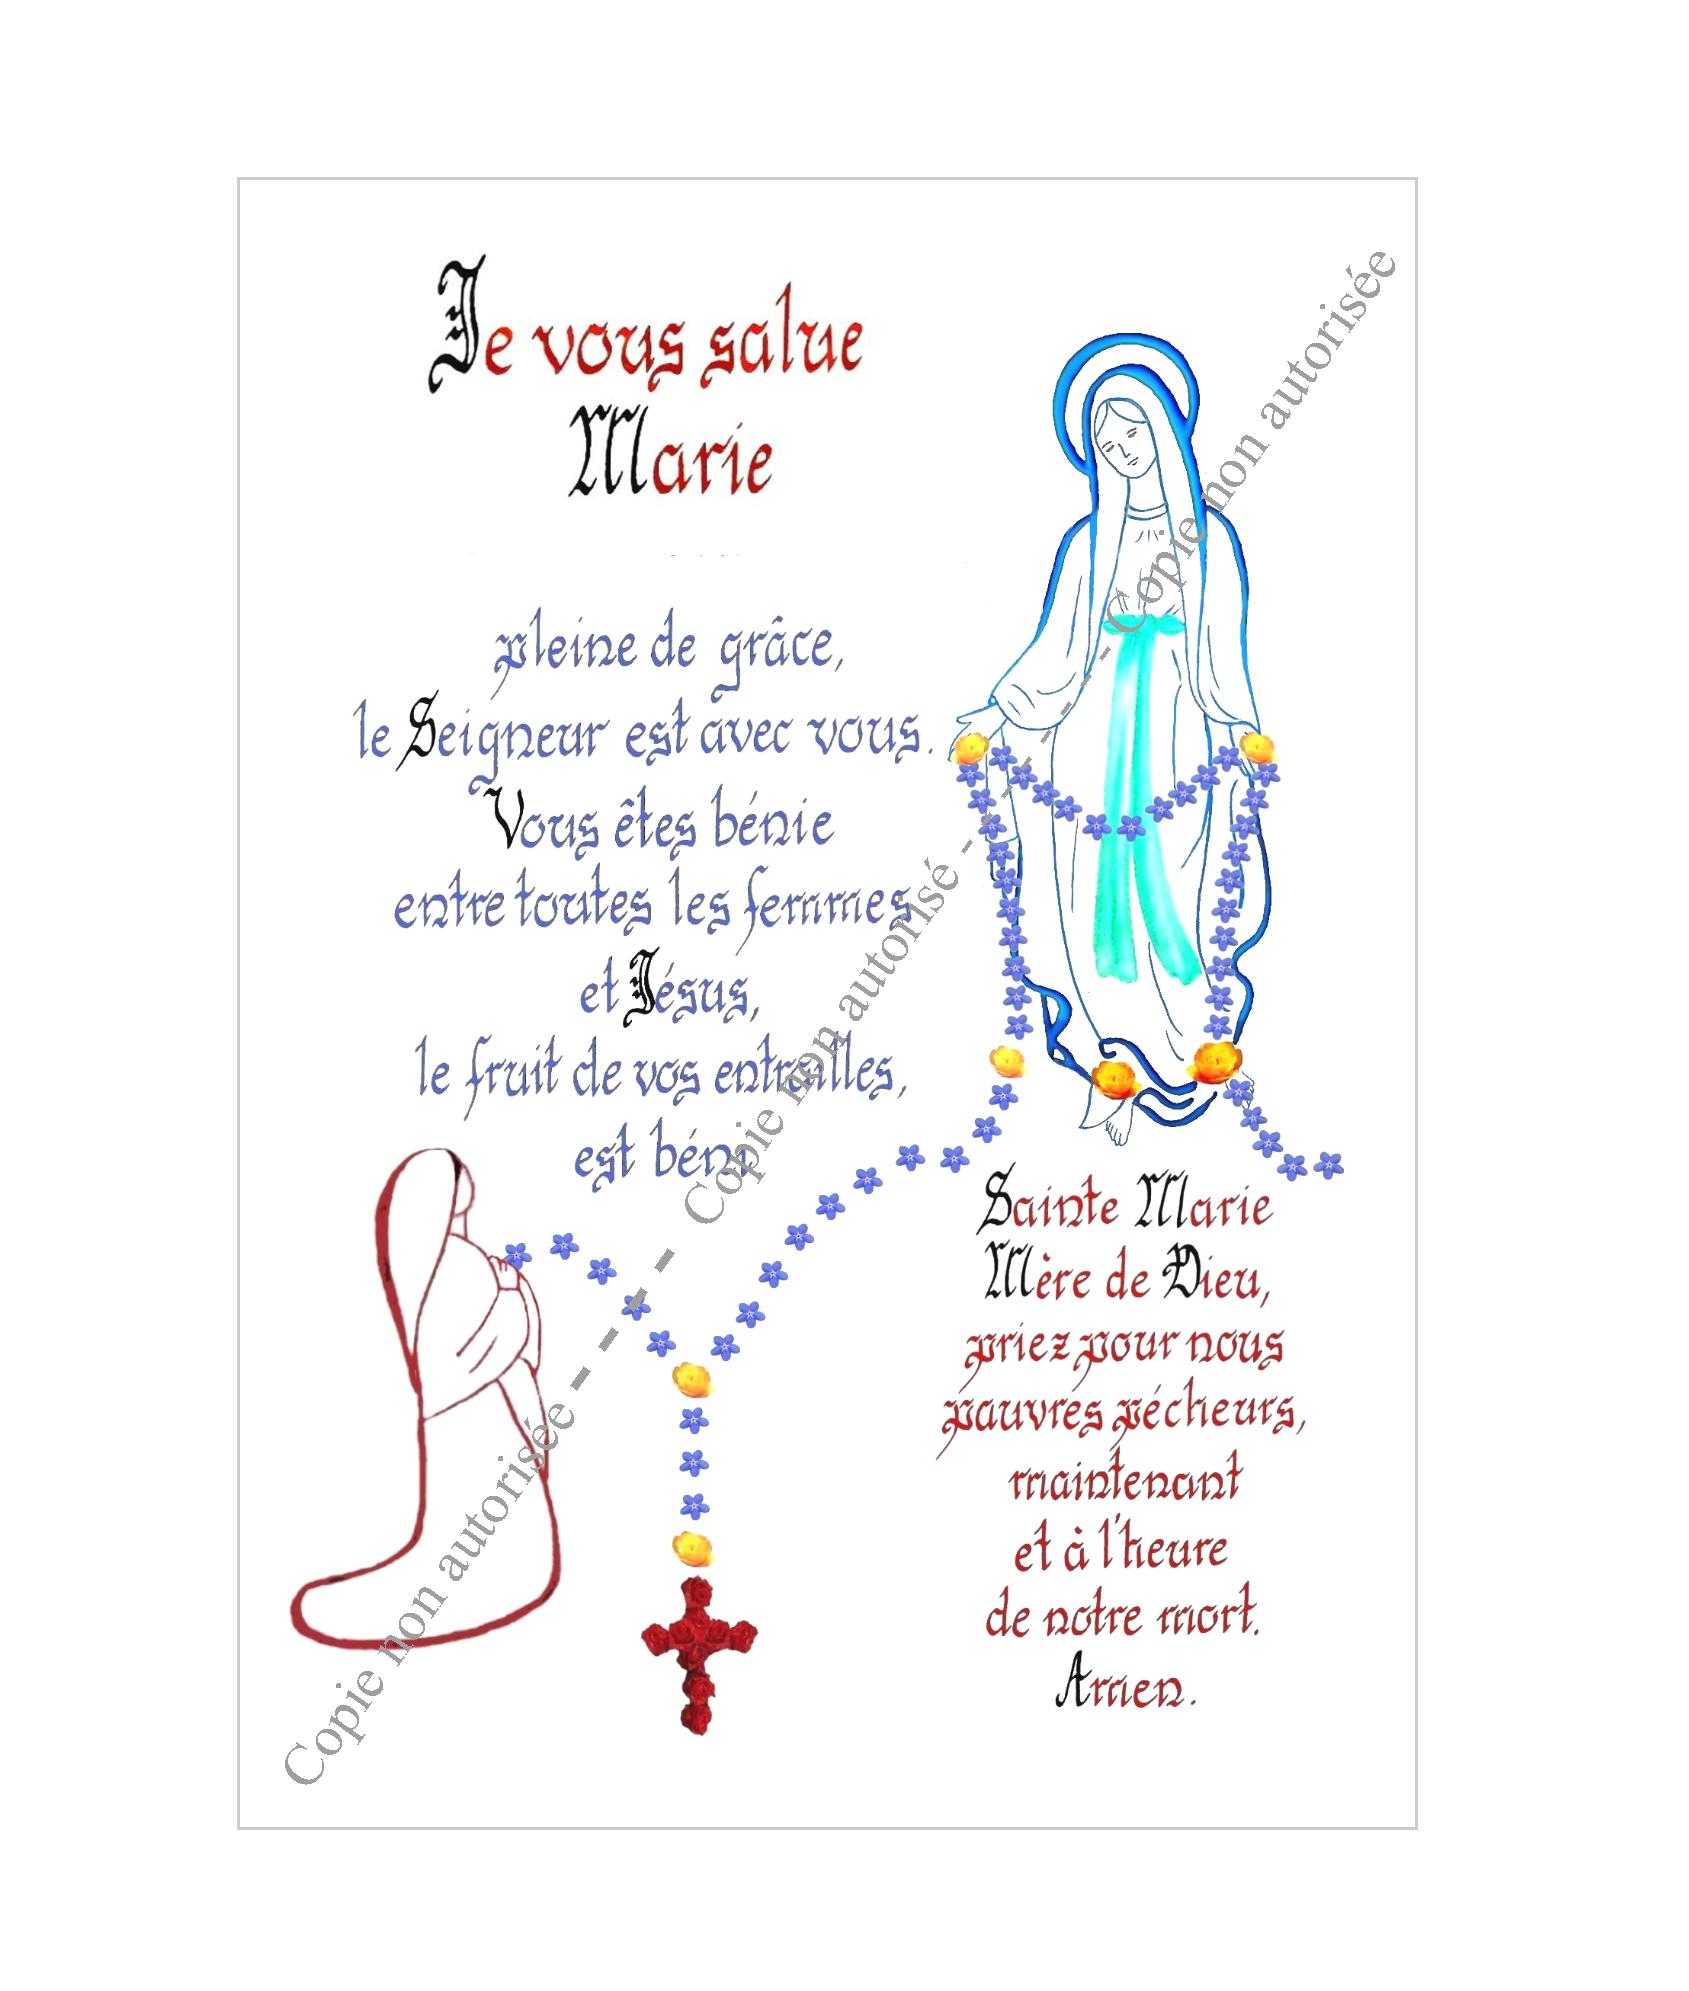 Je vous salue
Marie
pleine de grâce,
le Seigneur est avec vous.
Vous êtes bénie
entre toutes les femmes
et Jésus,
le fruit de vos entrailles,
est béni
Sainte Marie
Mère de Dieu,
priez pour nous
pauvres pécheurs,
maintenant
et à l'heure
de notre mort.
Amen.
Copie non autorisée --- Copie non autorisé --- Copie non autorisée